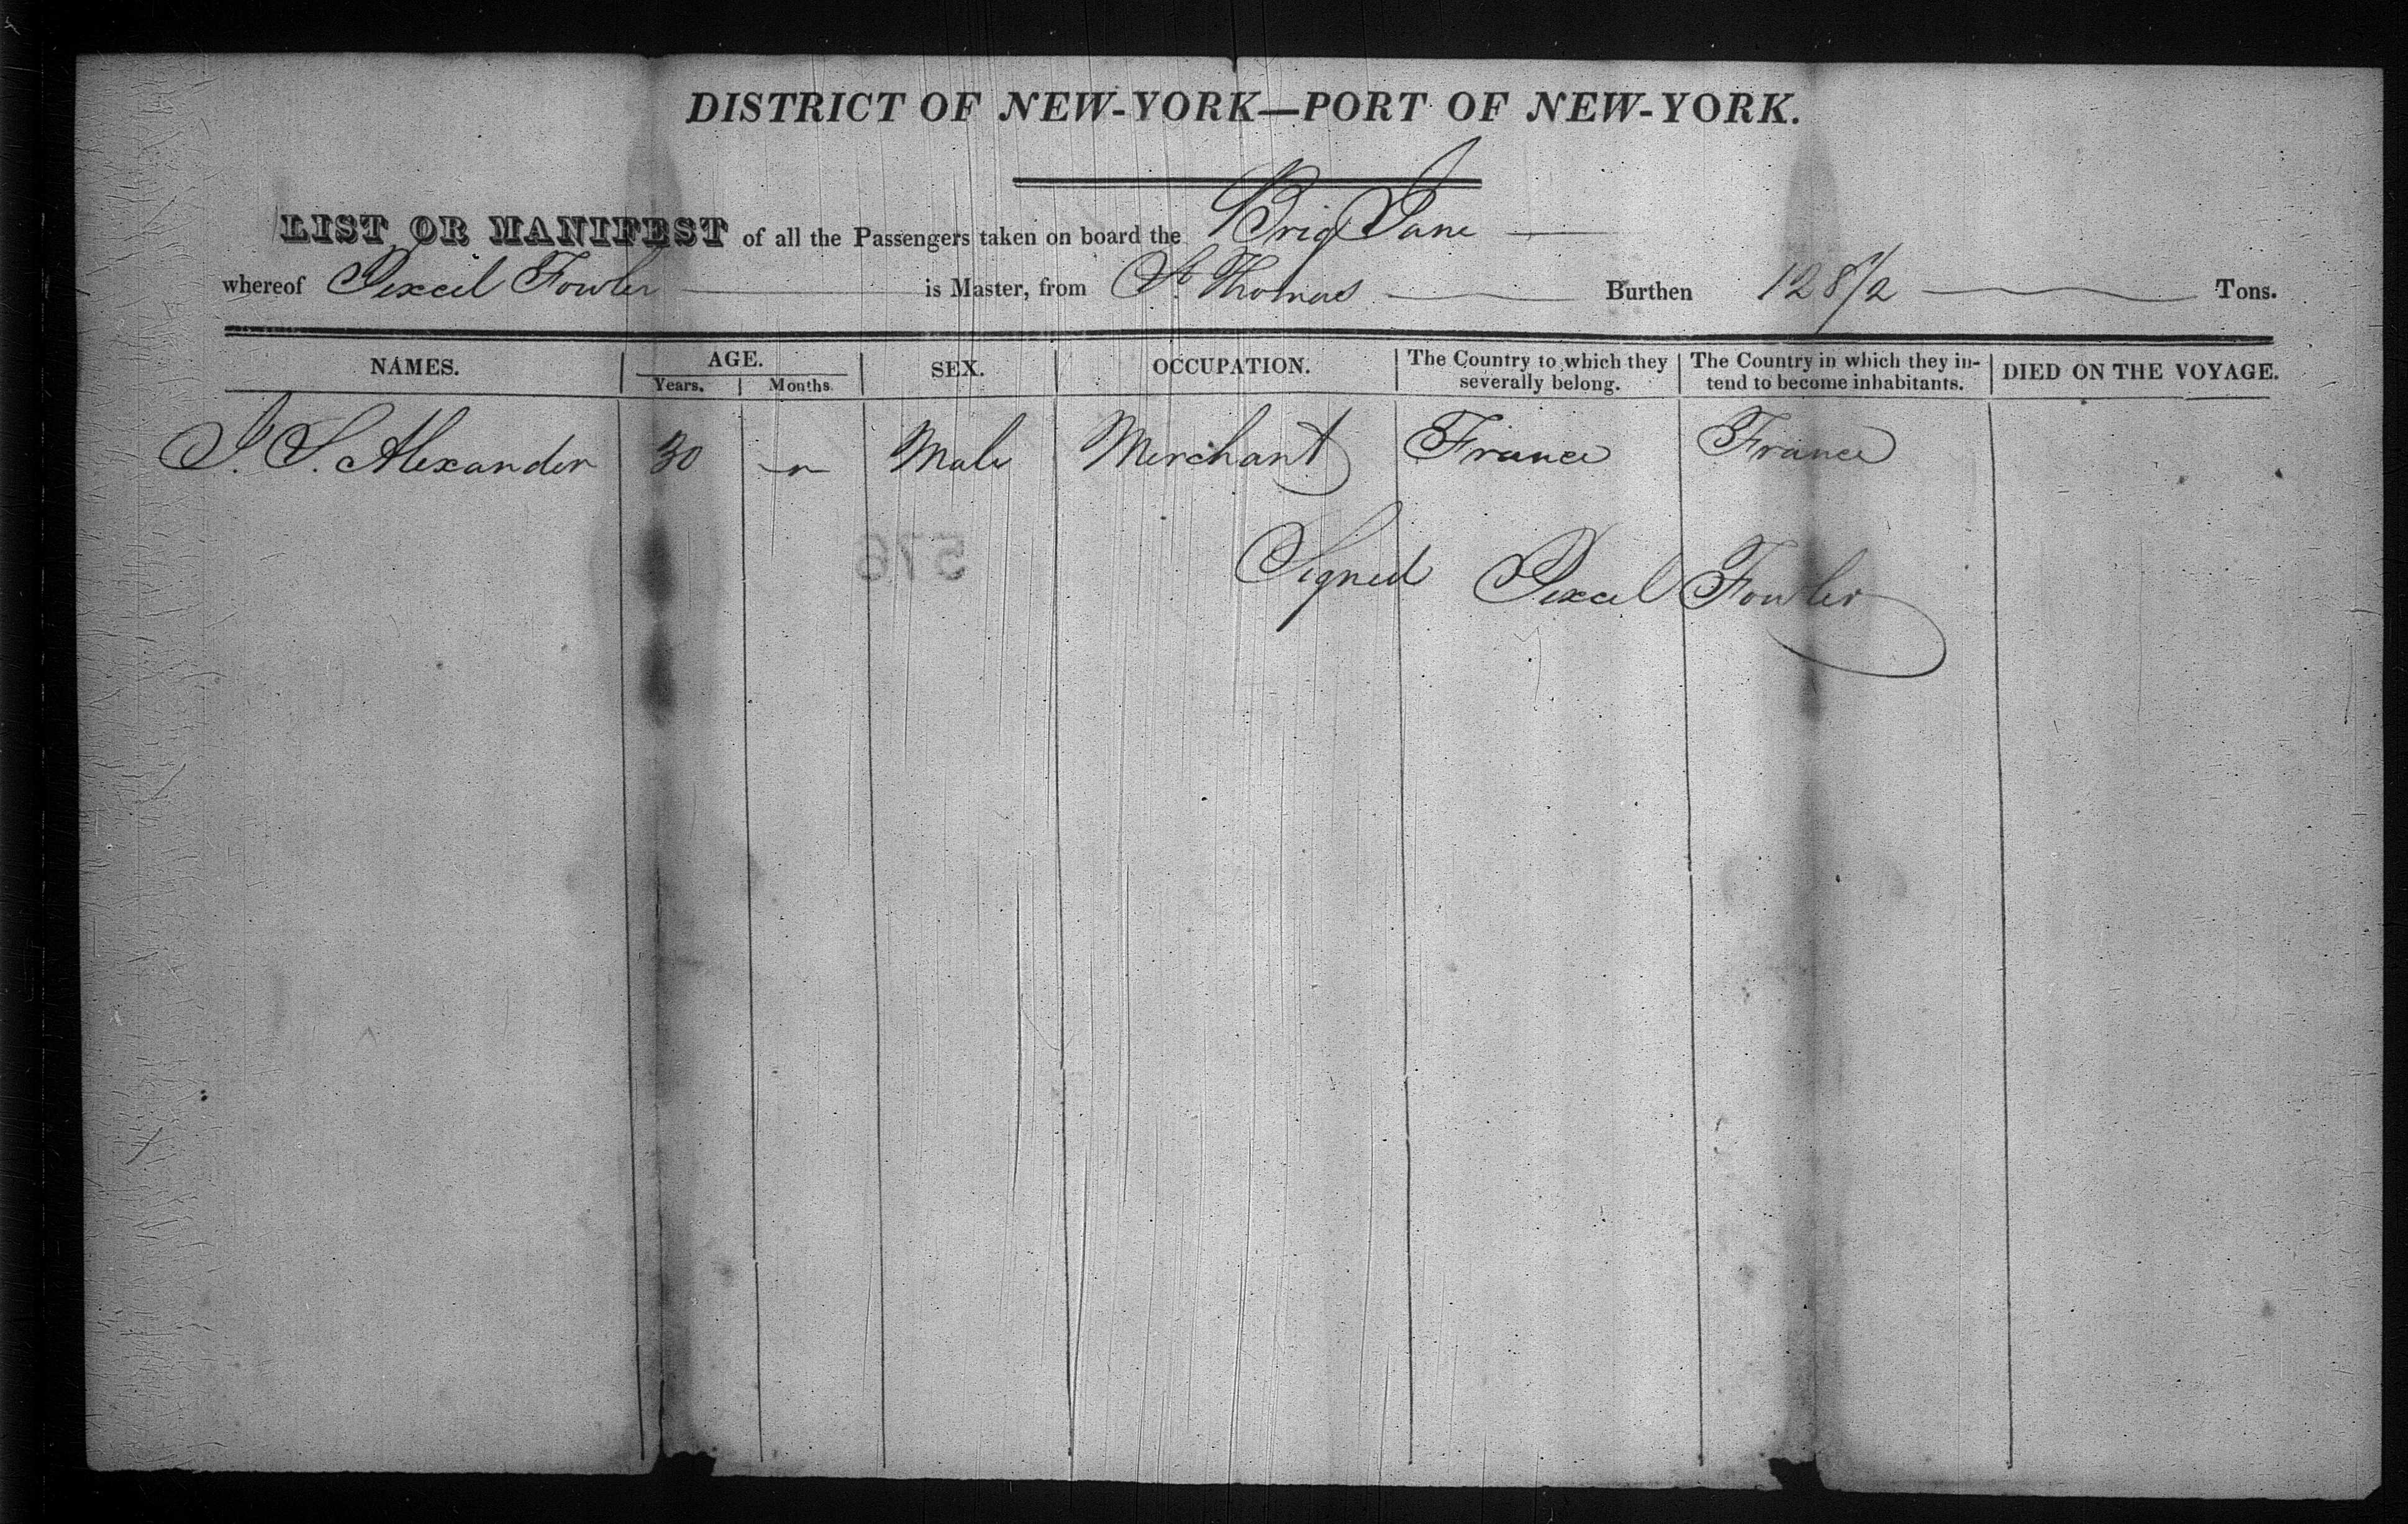 DISTRICT OF NEW-YORK—PORT OF NEW-YORK.
LIST OR MANIFEST of all the Passengers taken on board the Brig Jane
whereof Pexcel Fowler is Master, from St Thomas Burthen 128 1/2 Tons.
NAMES. AGE. SEX. OCCUPATION. The Country to which they severally belong. The Country in which they intend to become inhabitants. DIED ON THE VOYAGE.
Years. Months.
J. S. Alexander 30 Male Merchant France France
576
Signed Pexcel Fowler